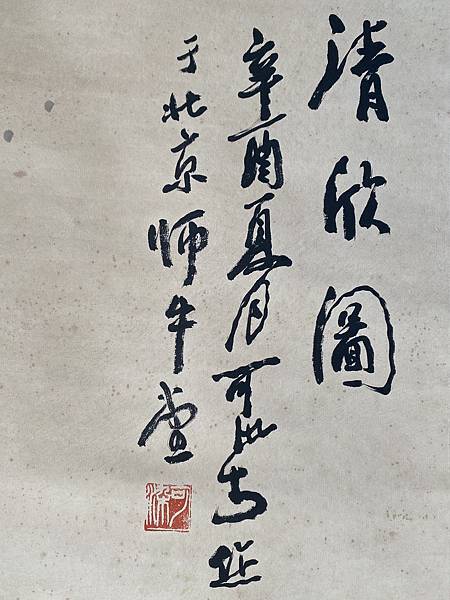 清欣圖
辛酉夏月可染
于北京師牛堂
可染